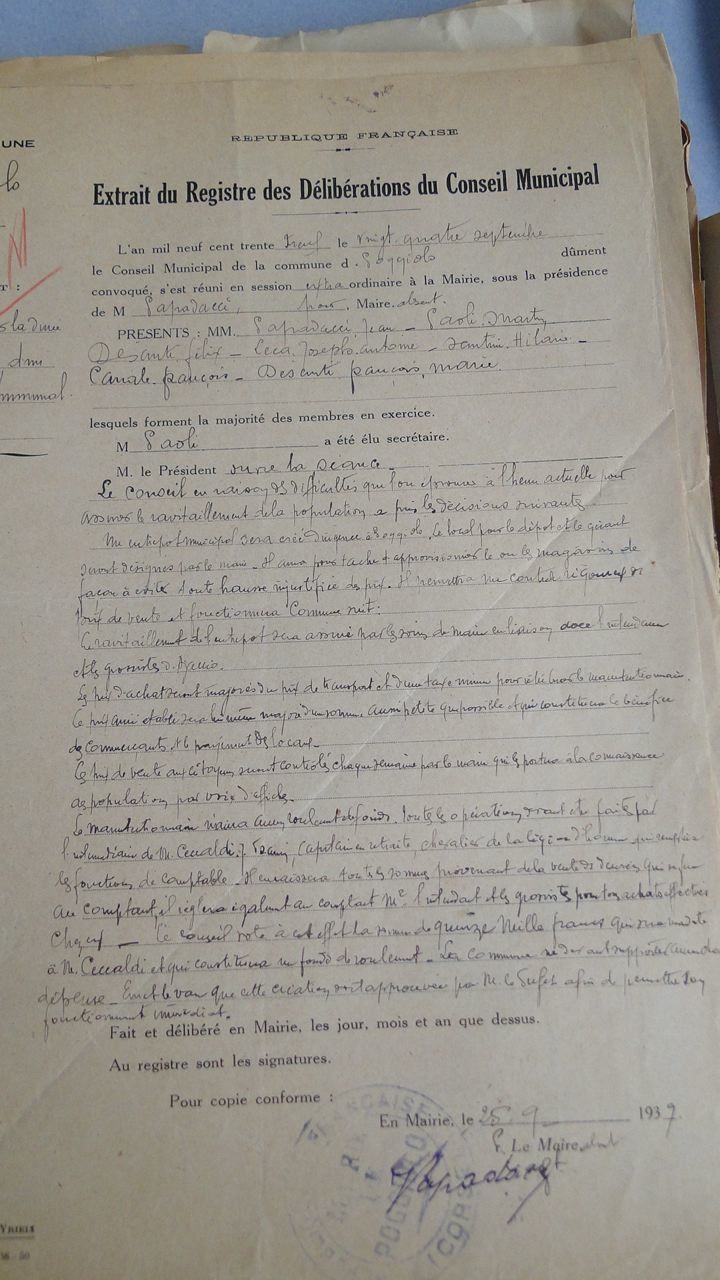 UNE
REPUBLIQUE FRANÇAISE
Extrait du Registre des Délibérations du Conseil Municipal
L'an mil neuf cent trente neuf le vingt quatre septembre
le Conseil Municipal de la commune d Poggiolo dûment
convoqué, s'est réuni en session extraordinaire à la Mairie, sous la présidence
de M Papadacci, pour, Maire absent.
PRESENTS : MM. Papadacci, Jean – Paoli Martin
Desanti félix – Ceca Joseph antoine – Santini Hilaire –
Canale françois – Desanti françois, marie
lesquels forment la majorité des membres en exercice.
M Paoli a été élu secrétaire.
M. le Président ouvre la séance
Le Conseil en raison des difficultés que l'on éprouve à l'heure actuelle pour
assurer le ravitaillement de la population a pris les décisions suivantes
Un entrepot municipal sera créé d'urgence à Poggiolo. Le local pour le dépot et le gérant
seront désignés par le maire. Il aura pour tache d'approvisionner le ou les magasins de
façon à éviter toute hausse injustifiée des prix. Il permettra un controle rigoureux de
prix de vente et fonctionnera comme suit :
Le ravitaillement de l'entrepot sera assuré par les soins du maire en liaison avec l'intendance
et les grossistes d'Ajaccio.
Les prix d'achat seront majorés du prix de transport et d'une taxe minime pour rétribuer le manutentionnaire.
Ce prix ainsi établi sera lui même majoré d'une somme aussi petite que possible et qui constituera le bénéfice
des commerçants et le payement des locaux.
Les prix de vente aux citoyens seront contrôlés chaque semaine par le maire qui les portera à la connaissance
des populations par voie d'affiches.
Le manutentionnaire n'aura aucun roulement de fonds. Toutes les opérations devront être faites par
l'intermédiaire de M. Ceccaldi, J. capitaine en retraite, chevalier de la légion d'honneur qui remplira
les fonctions de comptable. Il encaissera toutes les sommes provenant de la vente des denrées qui se fera
au comptant, il règlera également au comptant l'intendant et les grossistes pour les achats effectués
chez eux – Le conseil vote à cet effet la somme de quinze mille francs qui sera mandatée
à M. Ceccaldi et qui constituera un fond de roulement – La commune ne devant supporter aucune
dépense – Emet le vœu que cette création soit approuvée par M. le Préfet afin de permettre son
fonctionnement immédiat.
Fait et délibéré en Mairie, les jour, mois et an que dessus.
Au registre sont les signatures.
Pour copie conforme :
En Mairie, le 25 9 1939.
P. Le Maire absent
Papadacci